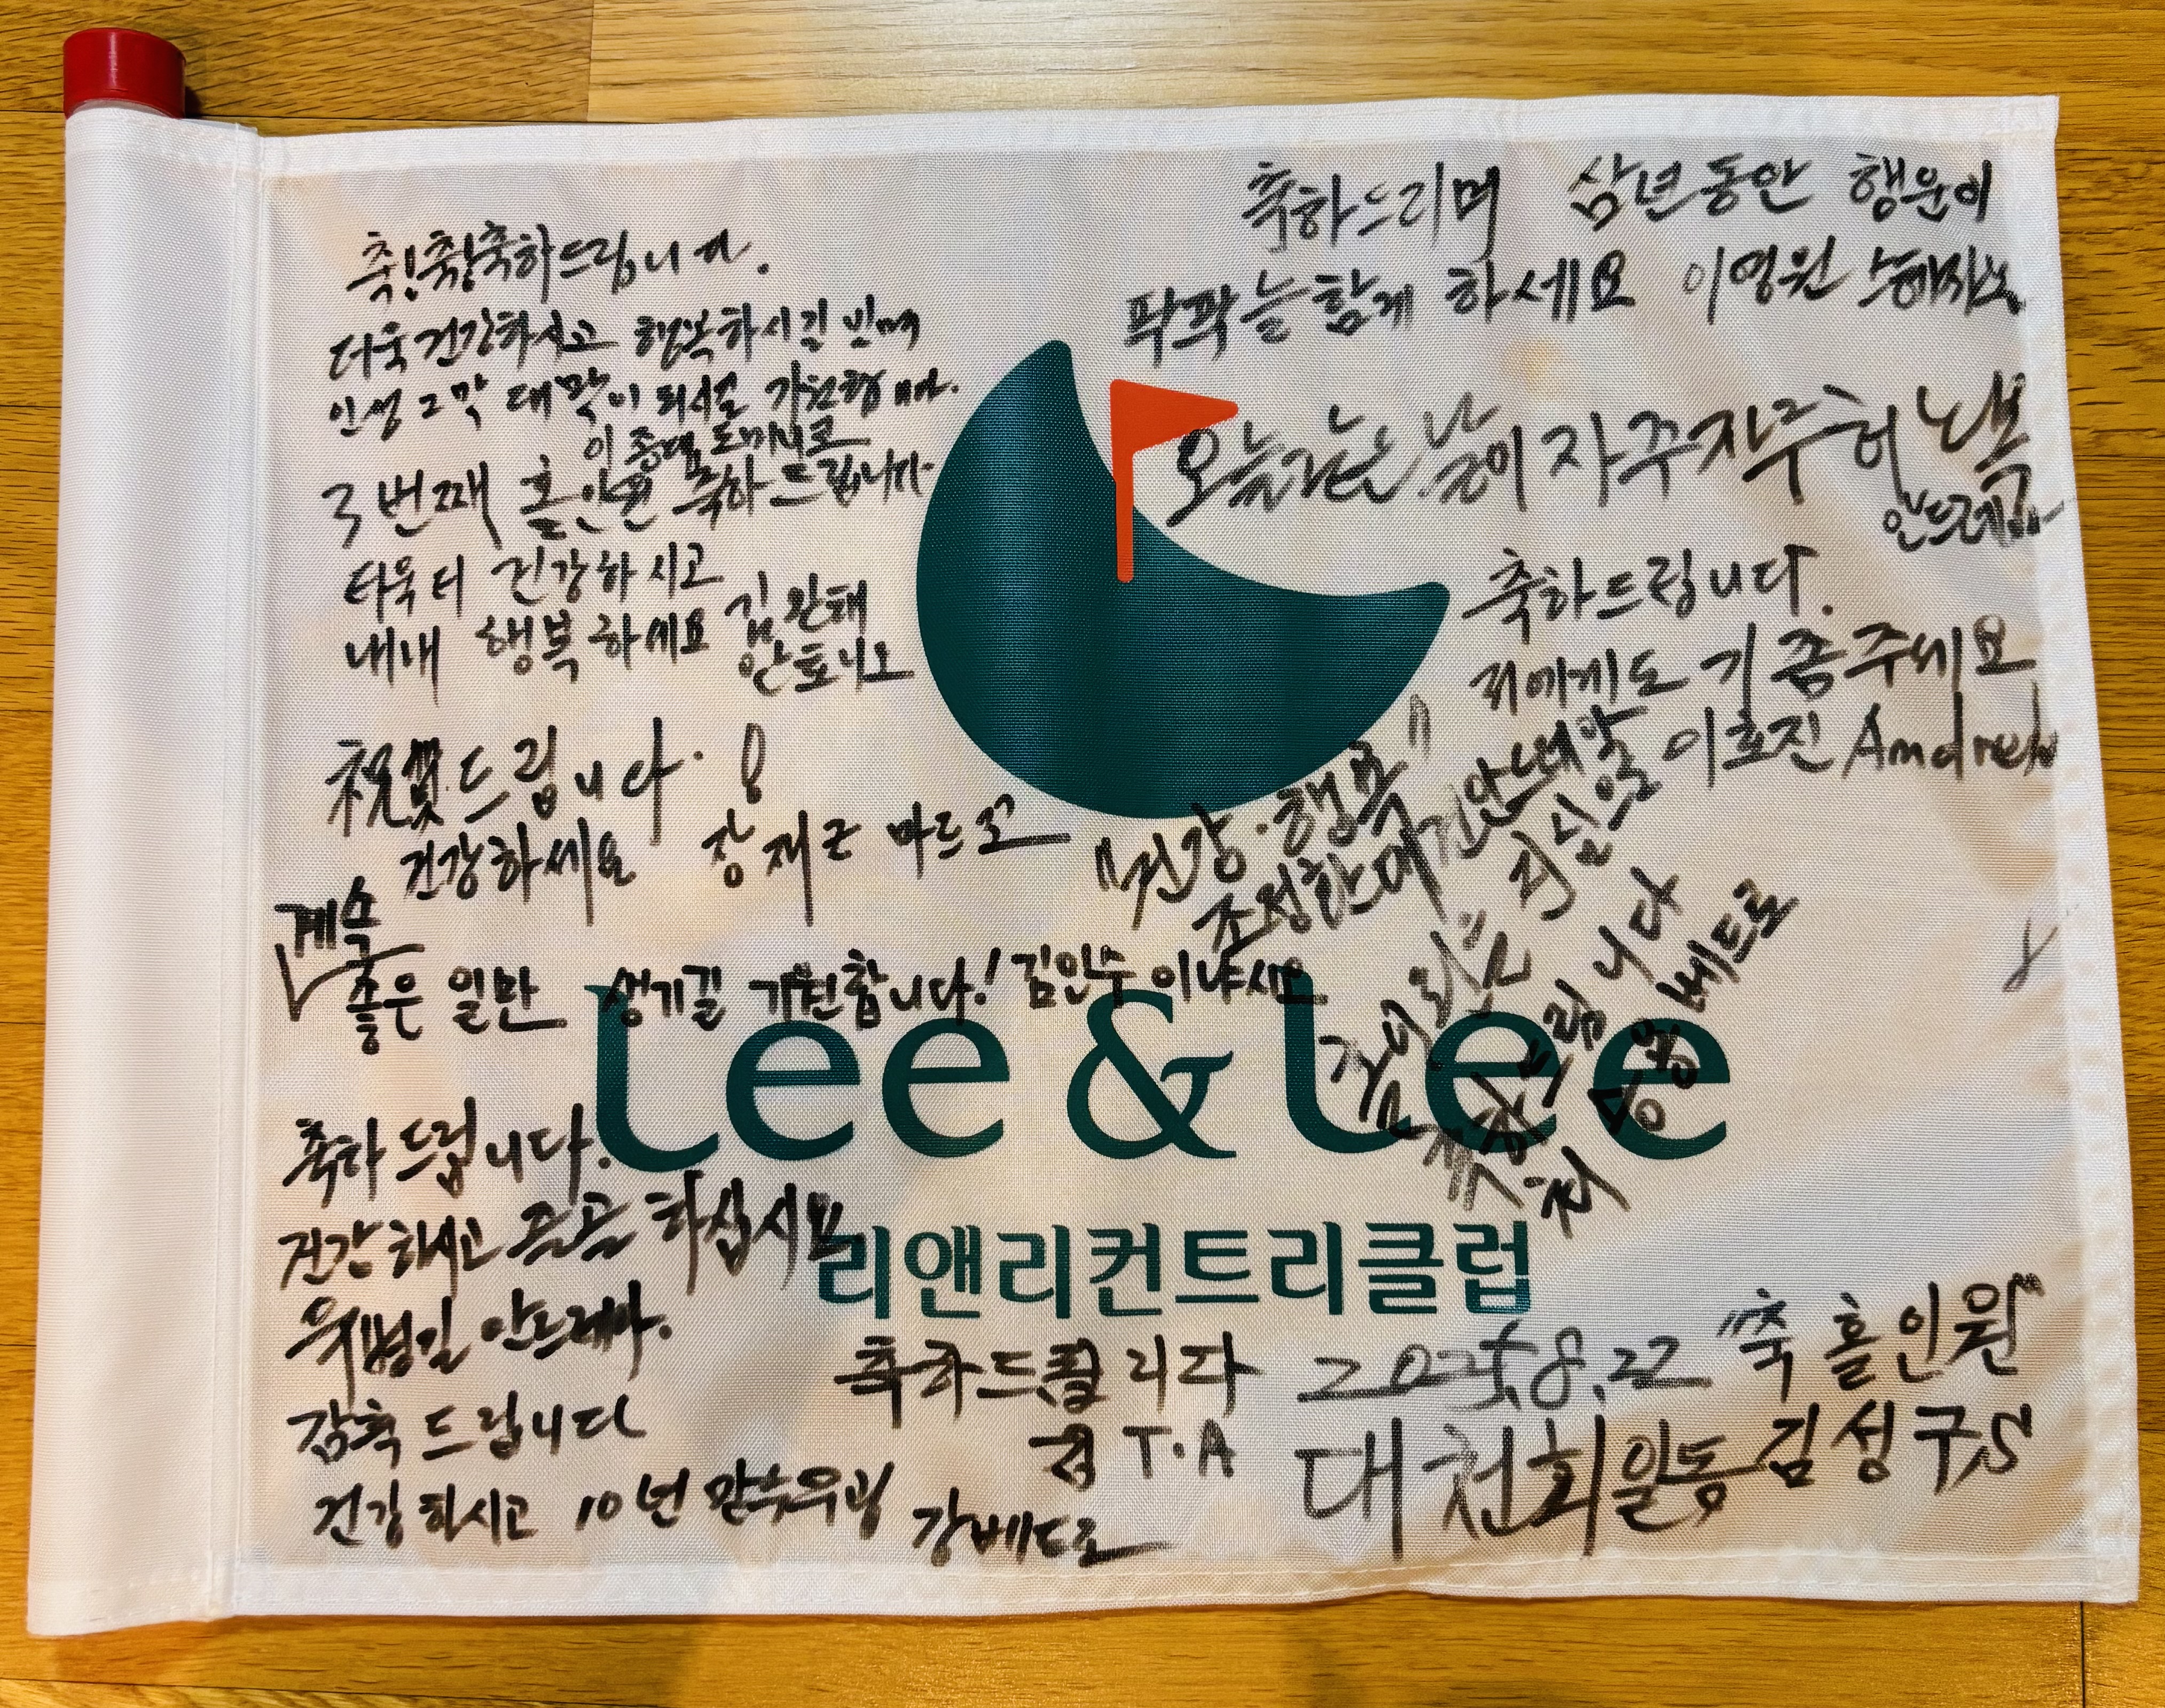 축! 축! 축하드립니다.
더욱 건강하시고 행복하시길 빌며
인생 2막 대막이 되시길 기원합니다.
이종대 도미니코
3번째 홀인원 축하드립니다
더욱더 건강하시고
내내 행복하세요 김완태
안토니오
祝賀드립니다. !
건강하세요 장재근 마르코
계속
좋은 일만 생기길 기원합니다! 김인수 이냐시오
축하드립니다.
건강하시고 하십시요
안드레아.
감축드립니다
건강하시고 10년
강베드로
축하드리며 삼년동안 행운이
팍팍 늘 함께 하세요 이영원
오늘같은 날이 자주자주
안드레아
축하드립니다.
저에게도 기 좀 주세요
이호진 Andrea
"건강·행복"
축하드립니다
베드로
Lee & Lee
리앤리컨트리클럽
축하드립니다
김 T.A
2025.8.22 "축 홀인원"
대천회 일동 김성구S